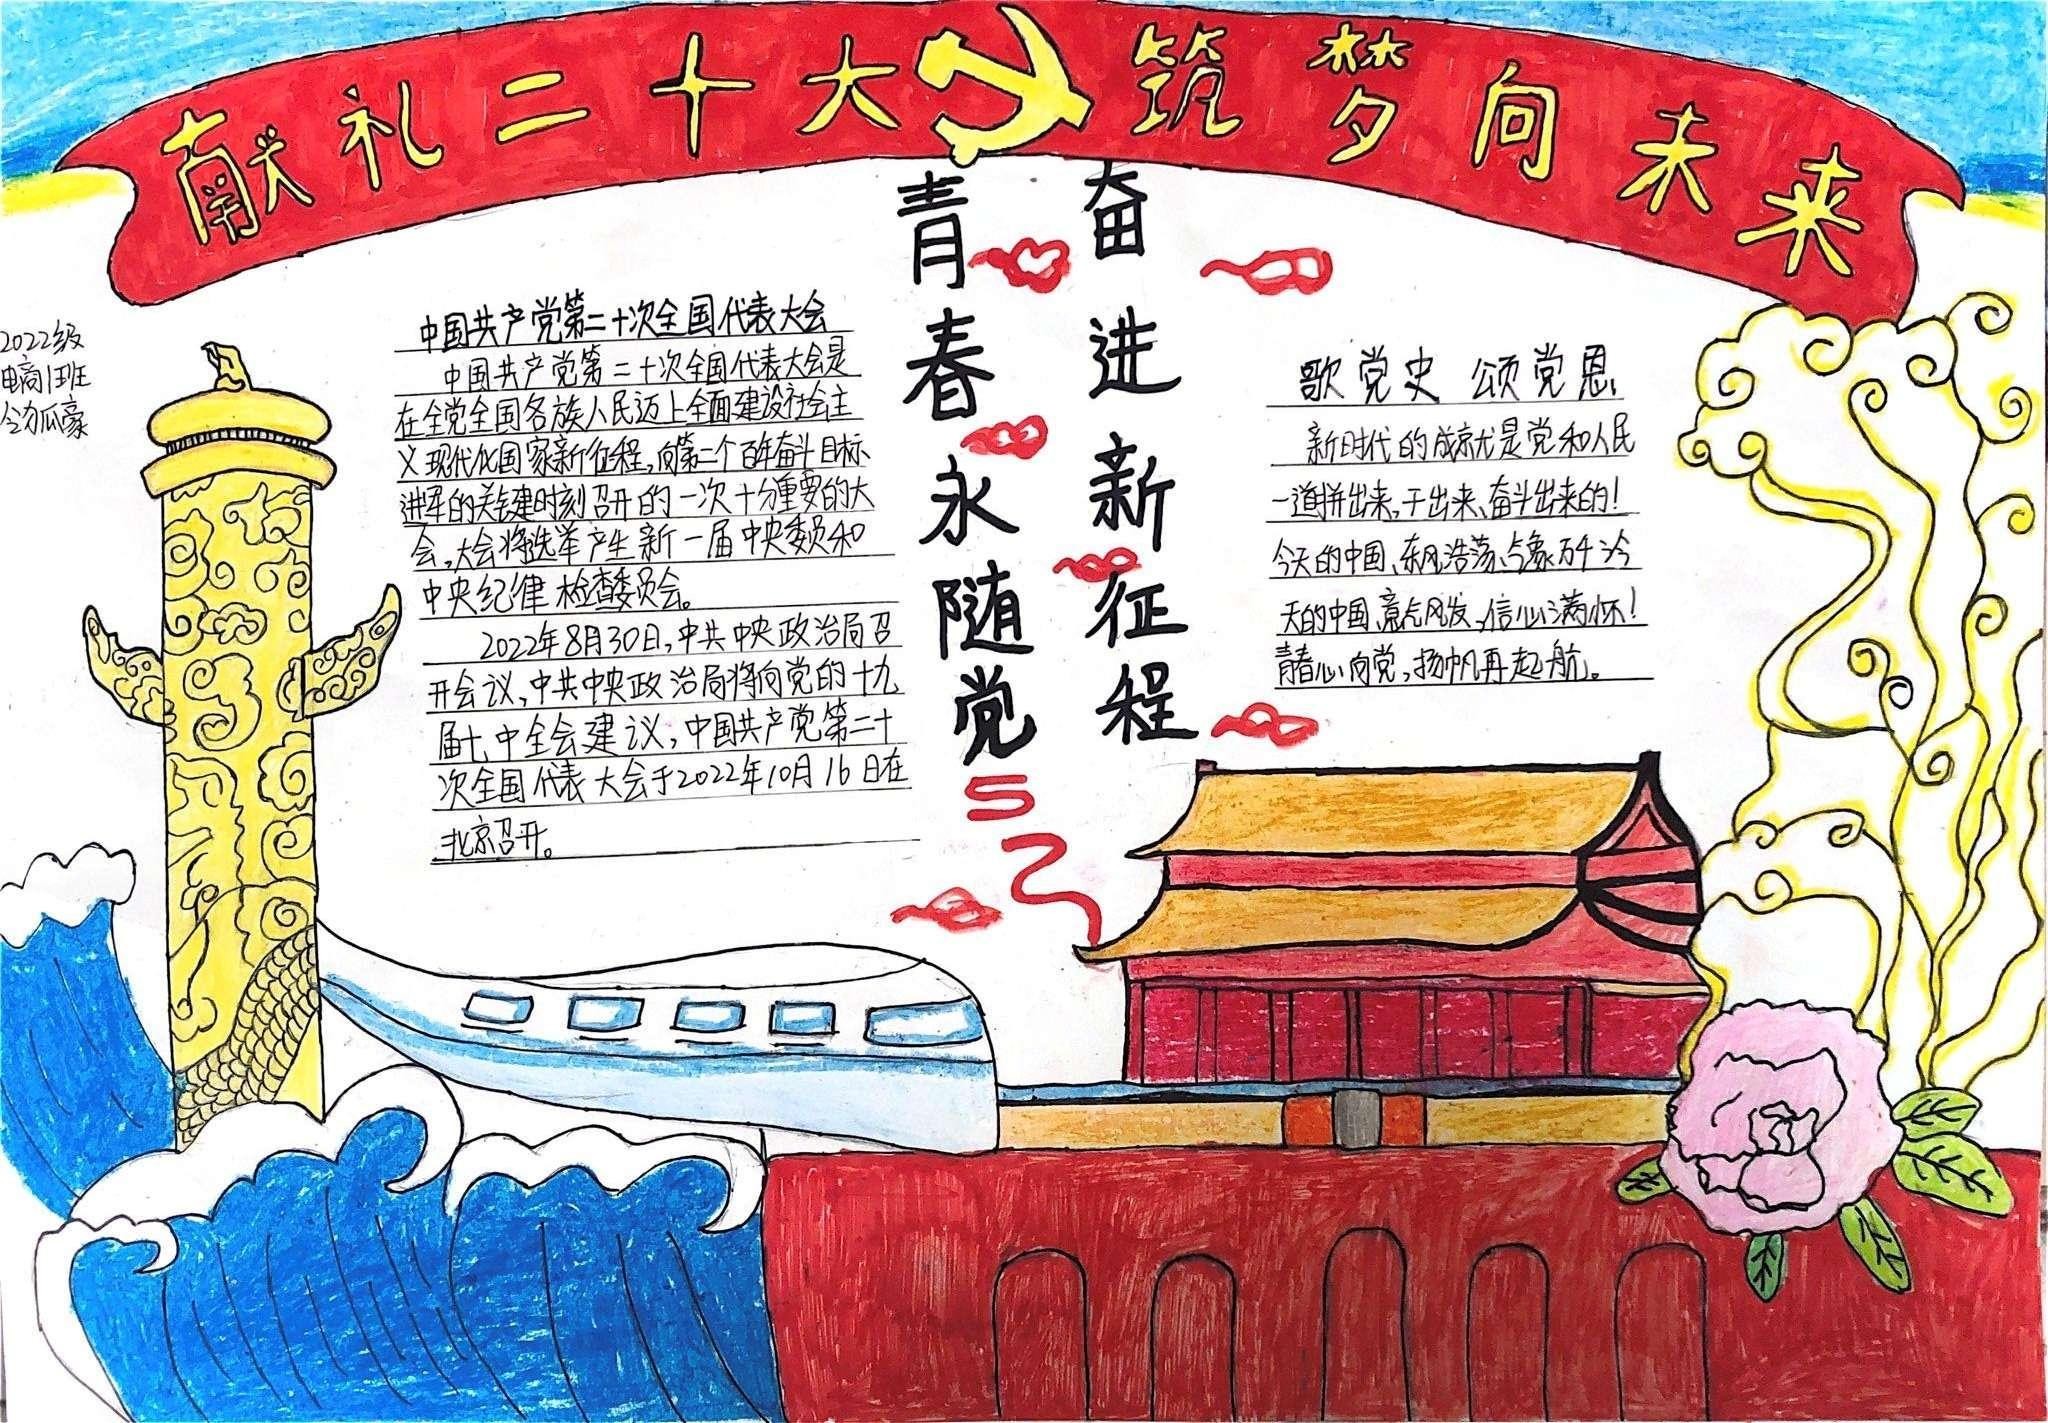 献礼二十大 筑梦向未来
2022级
电商1班
中国共产党第二十次全国代表大会
中国共产党第二十次全国代表大会是
在全党全国各族人民迈上全面建设社会主
义现代化国家新征程,向第二个百年奋斗目标
进军的关键时刻召开的一次十分重要的大
会,大会将选举产生新一届中央委员和
中央纪律检查委员会。
2022年8月30日,中共中央政治局召
开会议,中共中央政治局将向党的十九
届七中全会建议,中国共产党第二十
次全国代表大会于2022年10月16日在
北京召开。
青春永随党
奋进新征程
歌党史 颂党恩
新时代的成就是党和人民
一道拼出来,干出来、奋斗出来的!
今天的中国、东风浩荡、气象万千今
天的中国、意气风发、信心满怀!
青春心向党,扬帆再起航。